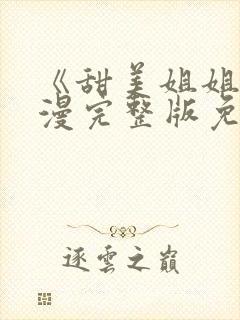 《甜美姐姐
漫完整版免
逐雲之巔